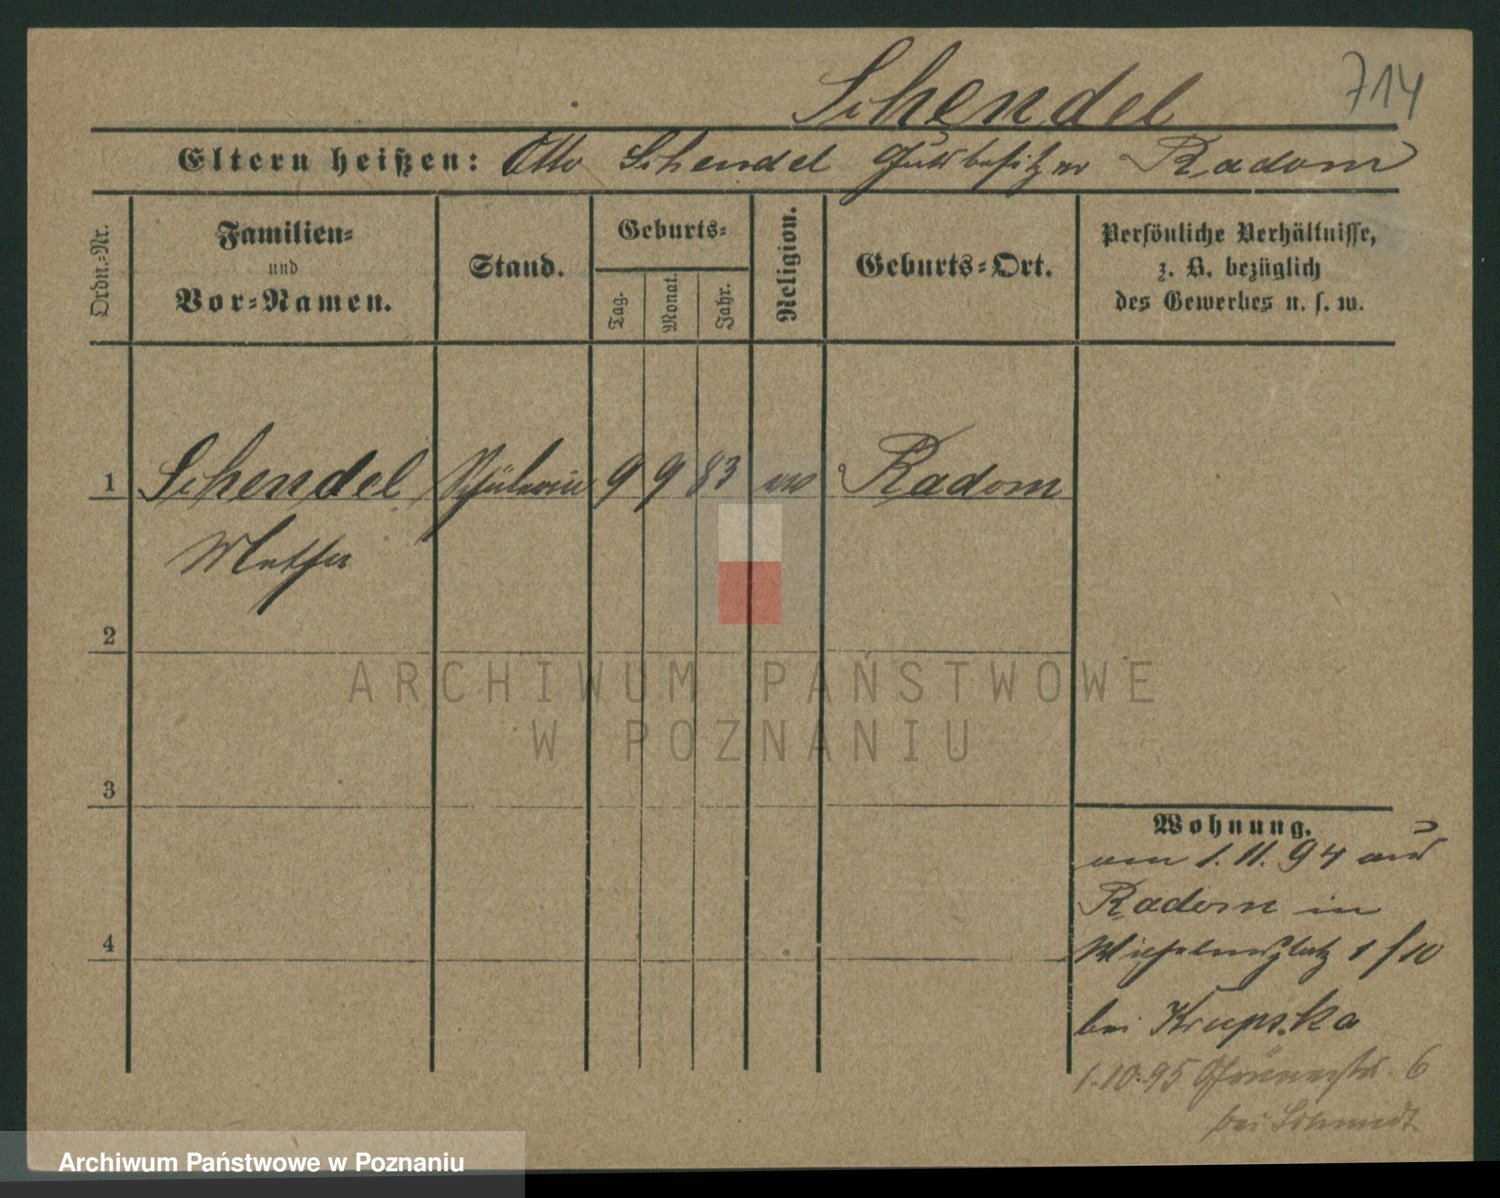 Schendel 714
Eltern heißen: Otto Schendel Gutsbesitzer Radom
Ordn.-Nr.
Familien-
und
Vor-Namen.
Stand.
Geburts-
Tag.
Monat.
Jahr.
Religion.
Geburts-Ort.
Persönliche Verhältnisse,
z. B. bezüglich
des Gewerbes u. s. w.
1 Schendel Schülerin 9 9 83 ev Radom
2
3
4
ARCHIWUM PAŃSTWOWE
W POZNANIU
Wohnung.
am 1.11.94 aus
Radom in
Wilhelmsplatz 1/10
bei Krupska
1.10.95 6
bei Schmidt
Archiwum Państwowe w Poznaniu